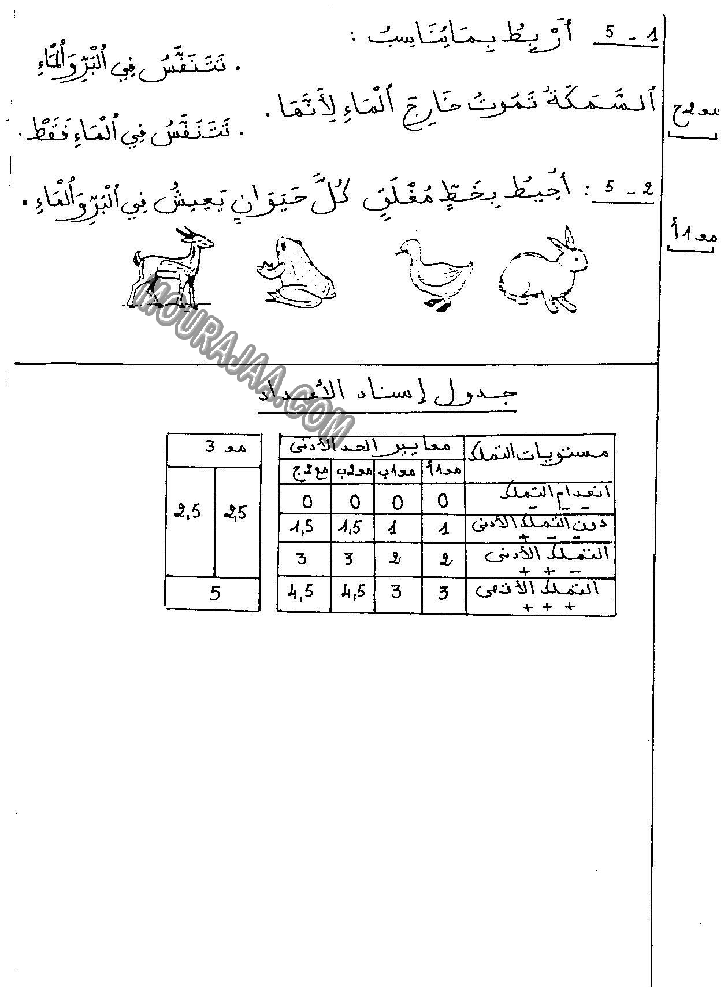 5 - 1 أَرْبِطُ بِمَا يُنَاسِبُ :
. تَتَنَفَّسُ فِي الْبَرِّ وَالْمَاءِ
اَلسَّمَكَةُ تَمُوتُ خَارِجَ اَلْمَاءِ لِأَنَّهَا .
. تَتَنَفَّسُ فِي الْمَاءِ فَقَطْ .
مع 2 ج
5 - 2 : أُحِيطُ بِخَطٍّ مُغْلَقٍ كُلَّ حَيَوَانٍ يَعِيشُ فِي الْبَرِّ وَالْمَاءِ .
مع 1 أ
MOURAJAA.COM
جدول إسناد الأعداد
مستويات التملك
معايير الحد الأدنى
مع 3
مع 1 أ مع 1 ب مع 2 ب مع 2 ج
انعدام التملك 0 0 0 0
دون التملك الأدنى 1 1 1,5 1,5
+ - -
2,5 2,5
التملك الأدنى 2 2 3 3
+ + -
التملك الأقصى 3 3 4,5 4,5
+ + +
5